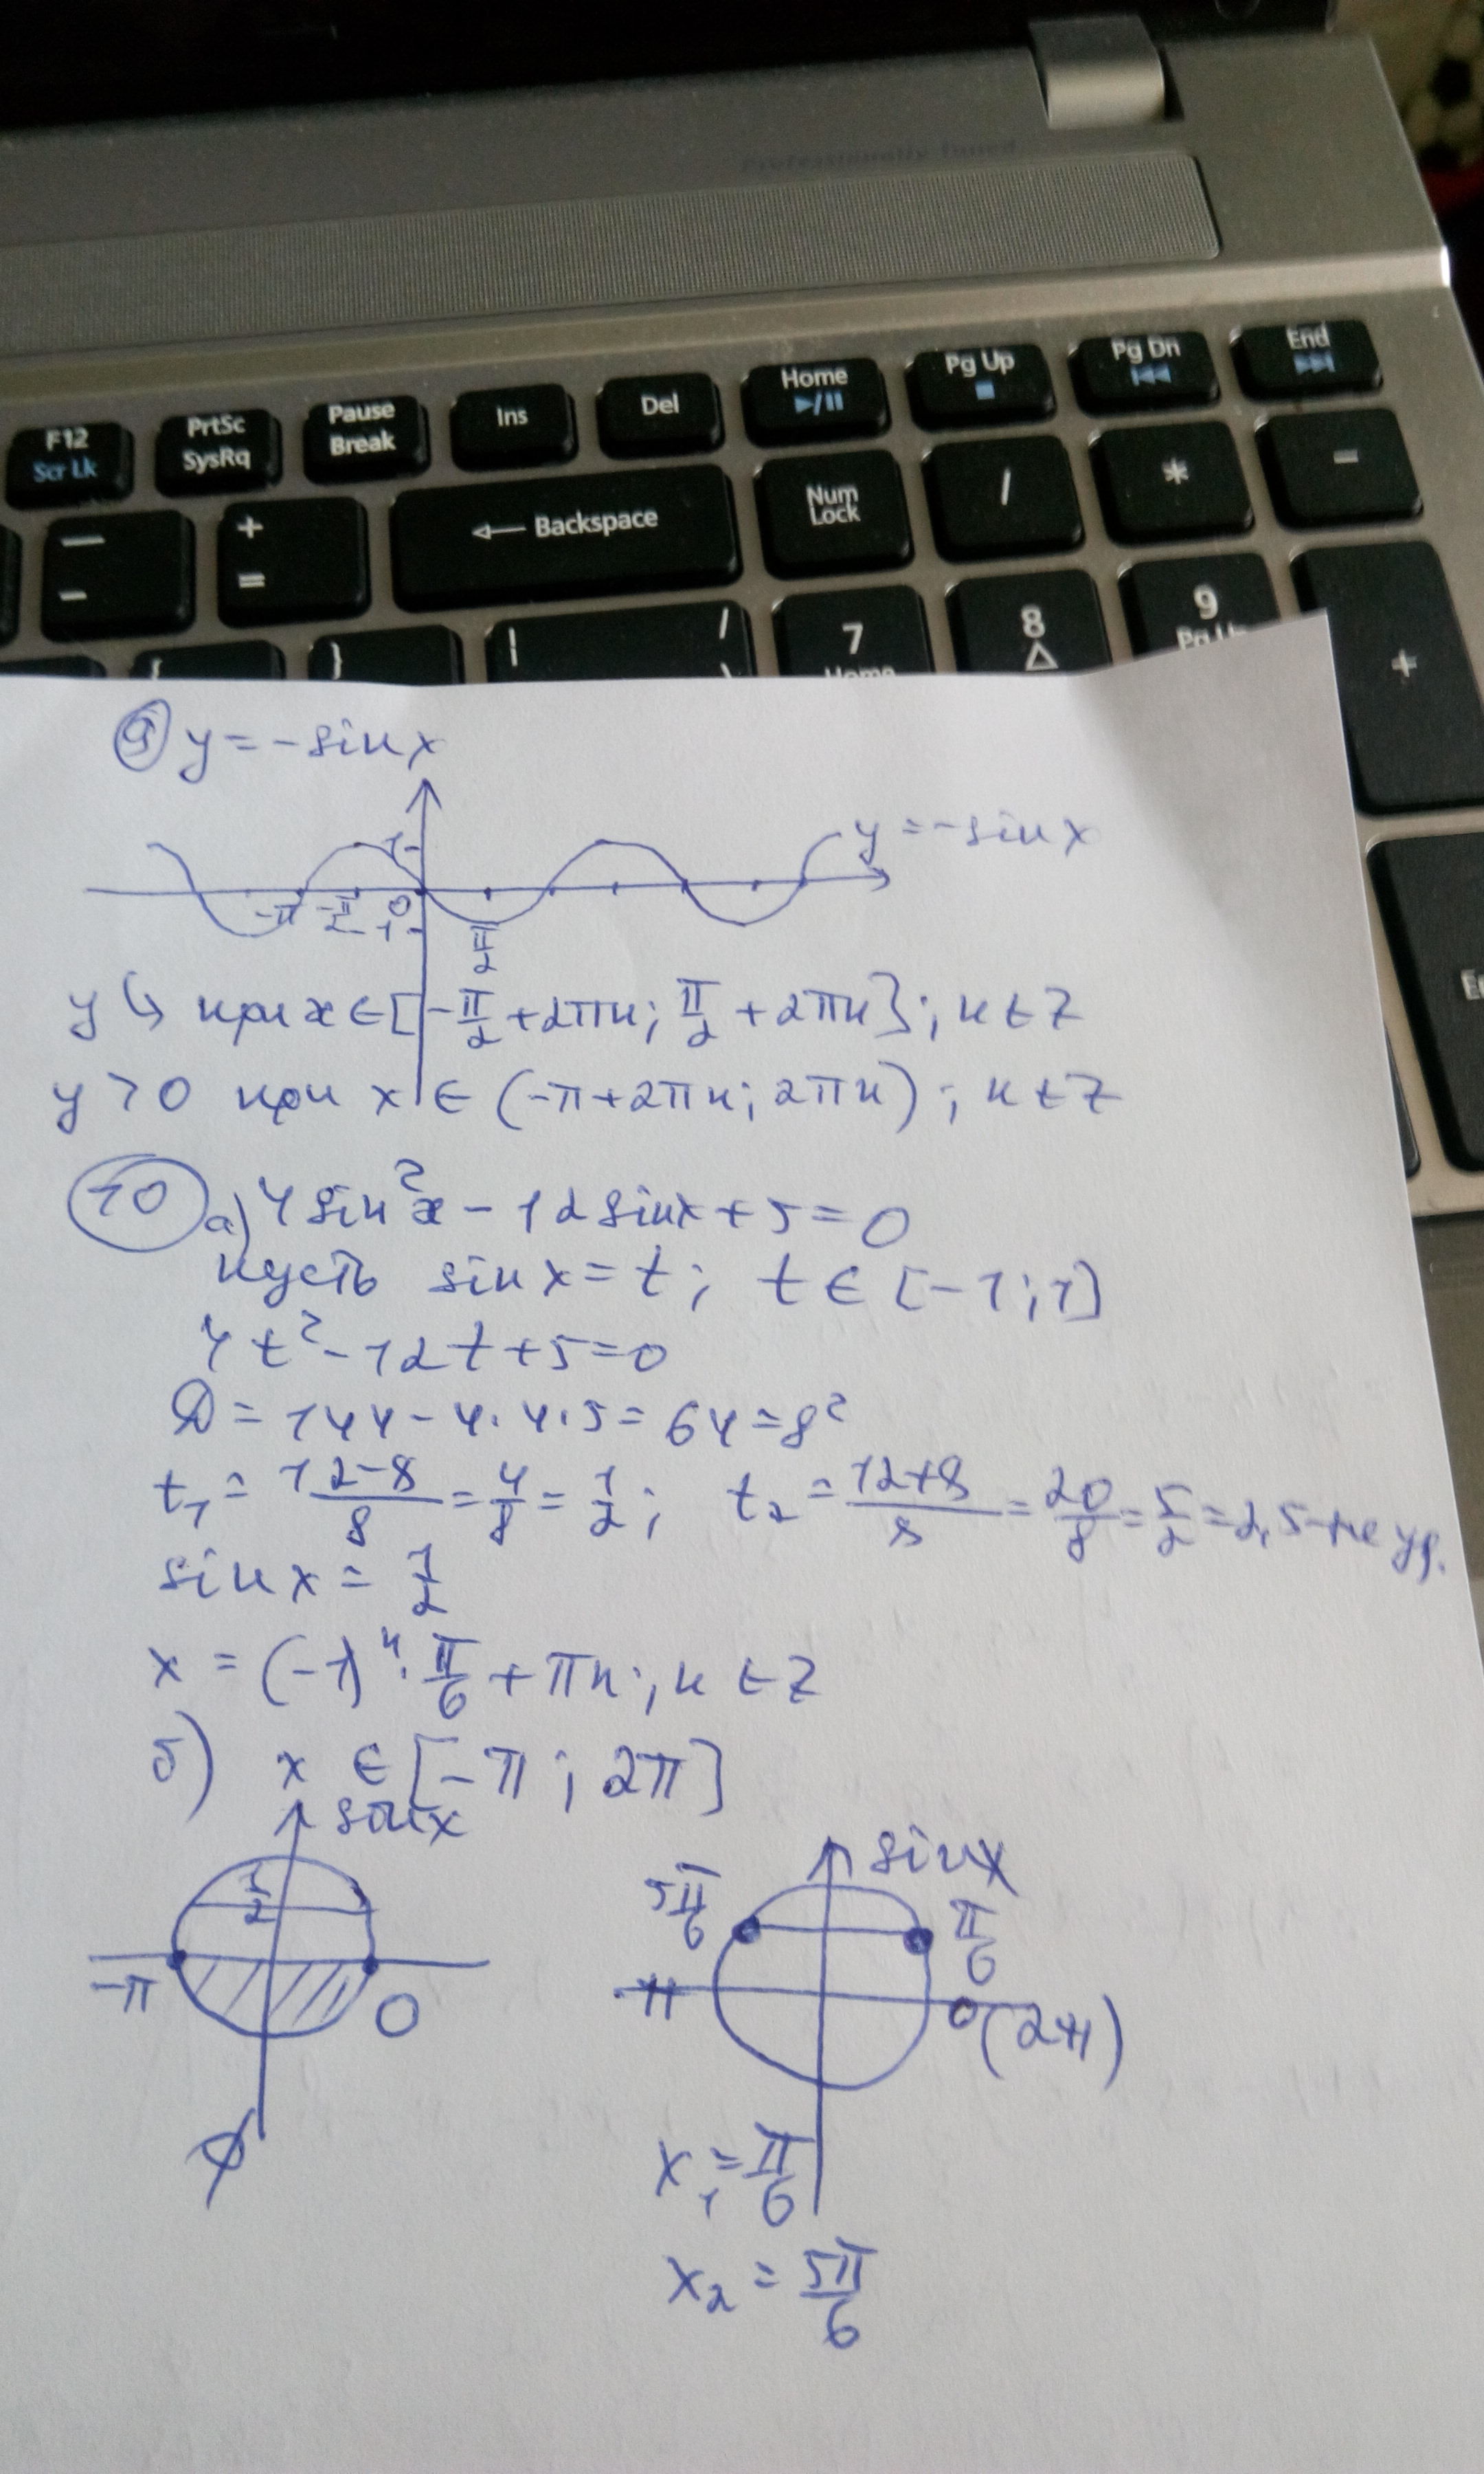 Professionally Tuned
F12 Scr Lk
PrtSc SysRq
Pause Break
Ins
Del
Home ▶/II
Pg Up
Pg Dn
End
— -
+ =
← Backspace
Num Lock
/
*
-
{
}
| / \
7 Home
8
9 Pg Up
+
9 y = -sin x
y = -sin x
1
-π -π/2 0
-1
π/2
y ↘ при x ∈ [-π/2 + 2πn; π/2 + 2πn]; n ∈ Z
y > 0 при x ∈ (-π+2πn; 2πn); n ∈ Z
10 а) 4sin²x - 12sinx + 5 = 0
пусть sin x = t; t ∈ [-1; 1]
4t² - 12t + 5 = 0
D = 144 - 4·4·5 = 64 = 8²
t₁ = 12-8/8 = 4/8 = 1/2; t₂ = 12+8/8 = 20/8 = 5/2 = 2,5 - не уд.
sin x = 1/2
x = (-1)ⁿ · π/6 + πn; n ∈ Z
б) x ∈ [-π; 2π]
sin x
1/2
-π 0
∅
sin x
5π/6 π/6
π 0(2π)
x₁ = π/6
x₂ = 5π/6